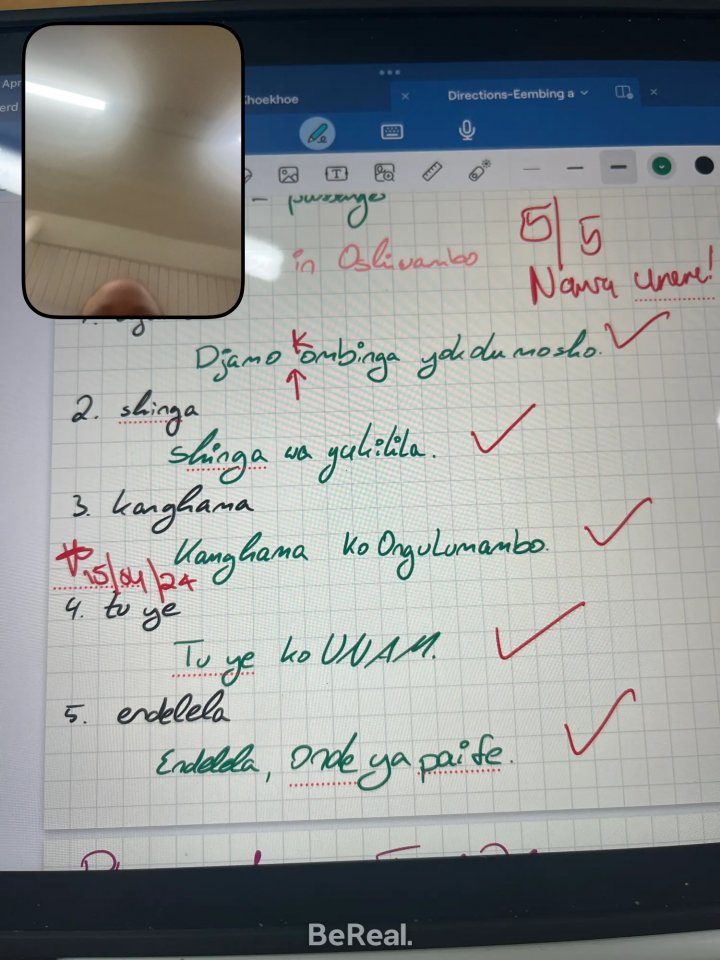 Apr
Khoekhoe
Directions-Eembing a
erd
passenger
in Oshivambo
5/5
Nawa unene!
Djamo kombinga yokolumosho.
2. shinga
Shinga wa yukilila.
3. kanghama
Kanghama ko Ongulumambo.
15/04/24
4. tu ye
Tu ye ko UNAM.
5. endelela
Endelela, onde ya paife.
BeReal.